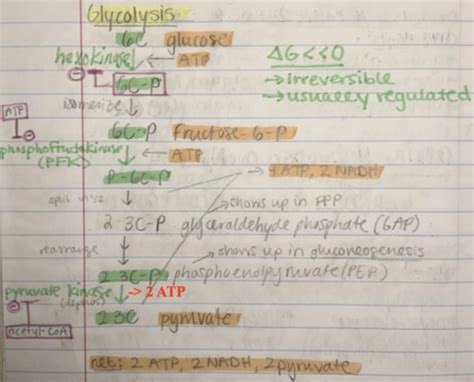 Glycolysis
6C glucose
hexokinase ← ATP
ΔG<<0
→ irreversible
→ usually regulated
6C-P
isomerize
ATP
6C-P fructose-6-P
phosphofructokinase (PFK) ← ATP
P-6C-P
4 ATP, 2 NADH
split in 1/2
→ shows up in PPP
2 3C-P glyceraldehyde phosphate (GAP)
rearrange
→ shows up in gluconeogenesis
2 3C-P phosphoenolpyruvate (PEP)
pyruvate kinase -> 2 ATP
2 3C pyruvate
acetyl-CoA
net: 2 ATP, 2 NADH, 2 pyruvate